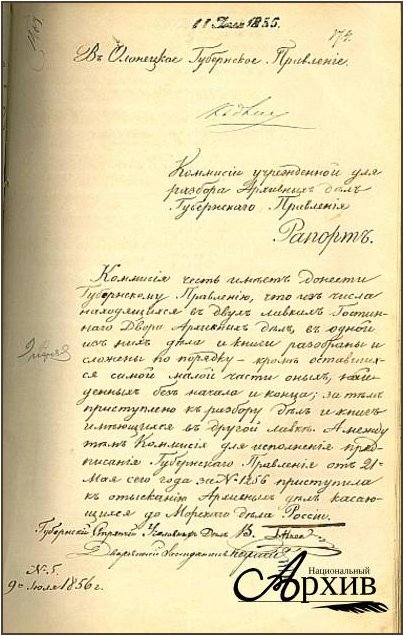 11 Июля 1855.
174.
Въ Олонецкое Губернское Правленiе.
Коммисiи учрежденной для
разбора Архивныхъ дѣлъ
Губернскаго Правленiя
Рапортъ.
Коммисiя честь имѣетъ донести
Губернскому Правленiю, что изъ числа
находящихся въ двухъ лавкахъ Гостин-
наго Двора Архивныхъ дѣлъ, въ одной
изъ нихъ дѣла и книги разобраны и
сложены по порядку - кромѣ оставших-
ся самой малой части оныхъ, най-
денныхъ безъ начала и конца; за тѣмъ
приступлено къ разбору дѣлъ и книгъ
имѣющихся въ другой лавкѣ. А между
тѣмъ Коммисiя для исполненiя пред-
писанiя Губернскаго Правленiя отъ 21го
Мая сего года за № 1256 приступила
къ отысканiю Архивныхъ дѣлъ касаю-
щихся до Морскаго дѣла Россiи.
Губернскiй Стряпчiй Уголовныхъ Дѣлъ В.
Дворянскiй Засѣдатель
№ 5.
9го Июля 1856 г.
Национальный
Архив